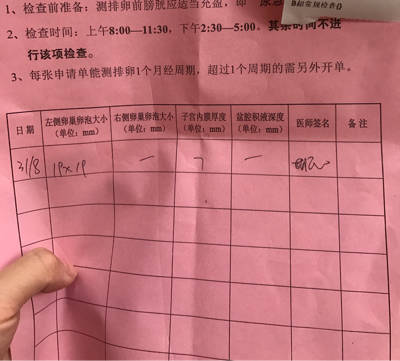 1、检查前准备：测排卵前膀胱应适当充盈，即
B超常规检查()
2、检查时间：上午8:00—11:30，下午2:30—5:00。其余时间不进
行该项检查。
3、每张申请单能测排卵1个月经周期，超过1个周期的需另外开单。
日 期 左侧卵巢卵泡大小（单位：mm） 右侧卵巢卵泡大小（单位：mm） 子宫内膜厚度（单位：mm） 盆腔积液深度（单位：mm） 医师签名 备 注
31/8 19×19 — 7 —